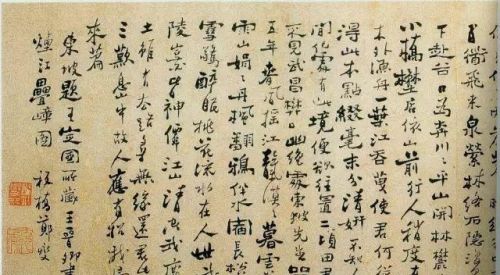 百衜飛来泉縈林络石隠
下赴谷口為奔川〻平山開林麓
小橋壄店依山前行人稍度
木外漁舟一葉江吞天使君何從
得此本點綴毫末分清妍不知人
間何處有此境便欲置二頃田君
不見武昌樊口幽絶處東坡先生留
五年春風摇江天漠〻暮雲
雨山娟〻丹楓翻鴉伴水宿長松
雪驚醉眠桃花流水在人世武
陵豈必皆神僊江山清空我
土雖有去路尋無緣還君
三歎息山中故人應有招我歸
來篇
東坡題王定國所藏王晉卿畫
煙江疊嶂圖 板橋鄭燮